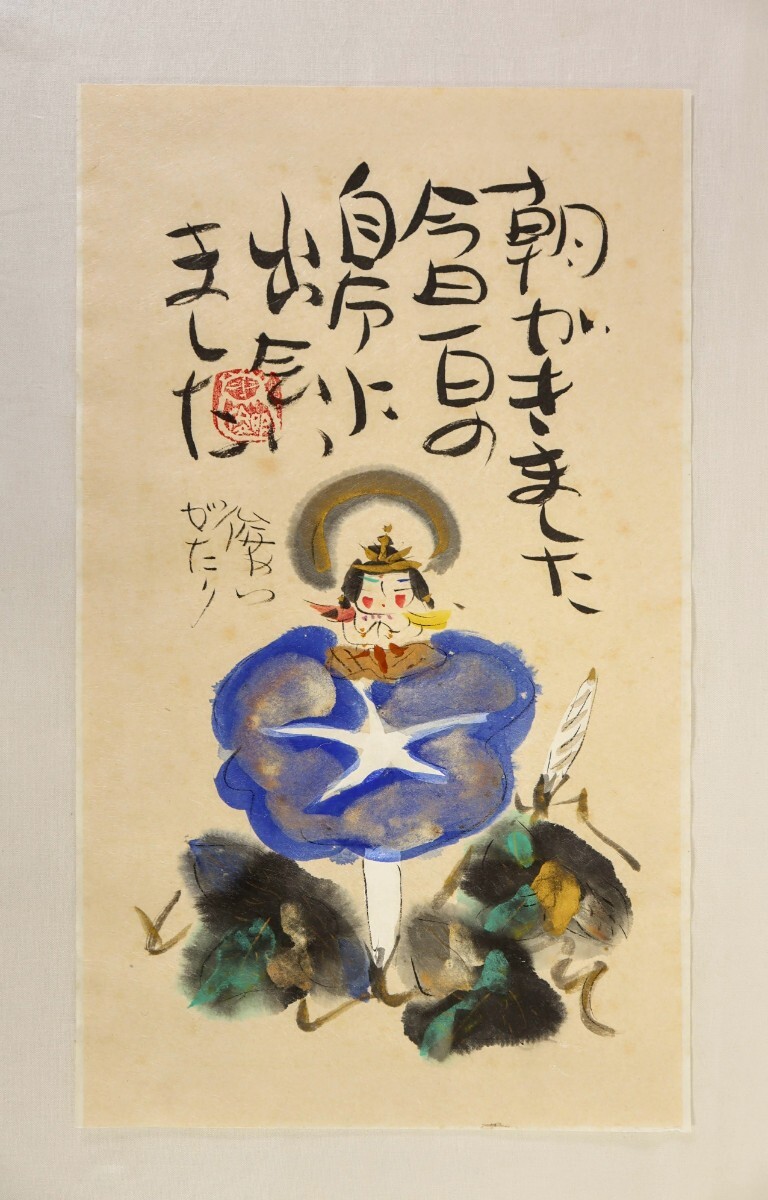 朝がきました
今日一日の
自分に
出会い
ました
がたり